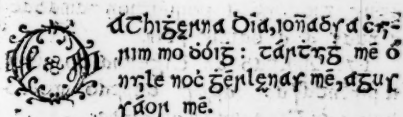 O a Thiġerna Dia, ioñadsa ċui-
rim mo ḋóiġ: tártuiġ mē ó
nuile noċ ġērlenas mē, agus
sáor mē.